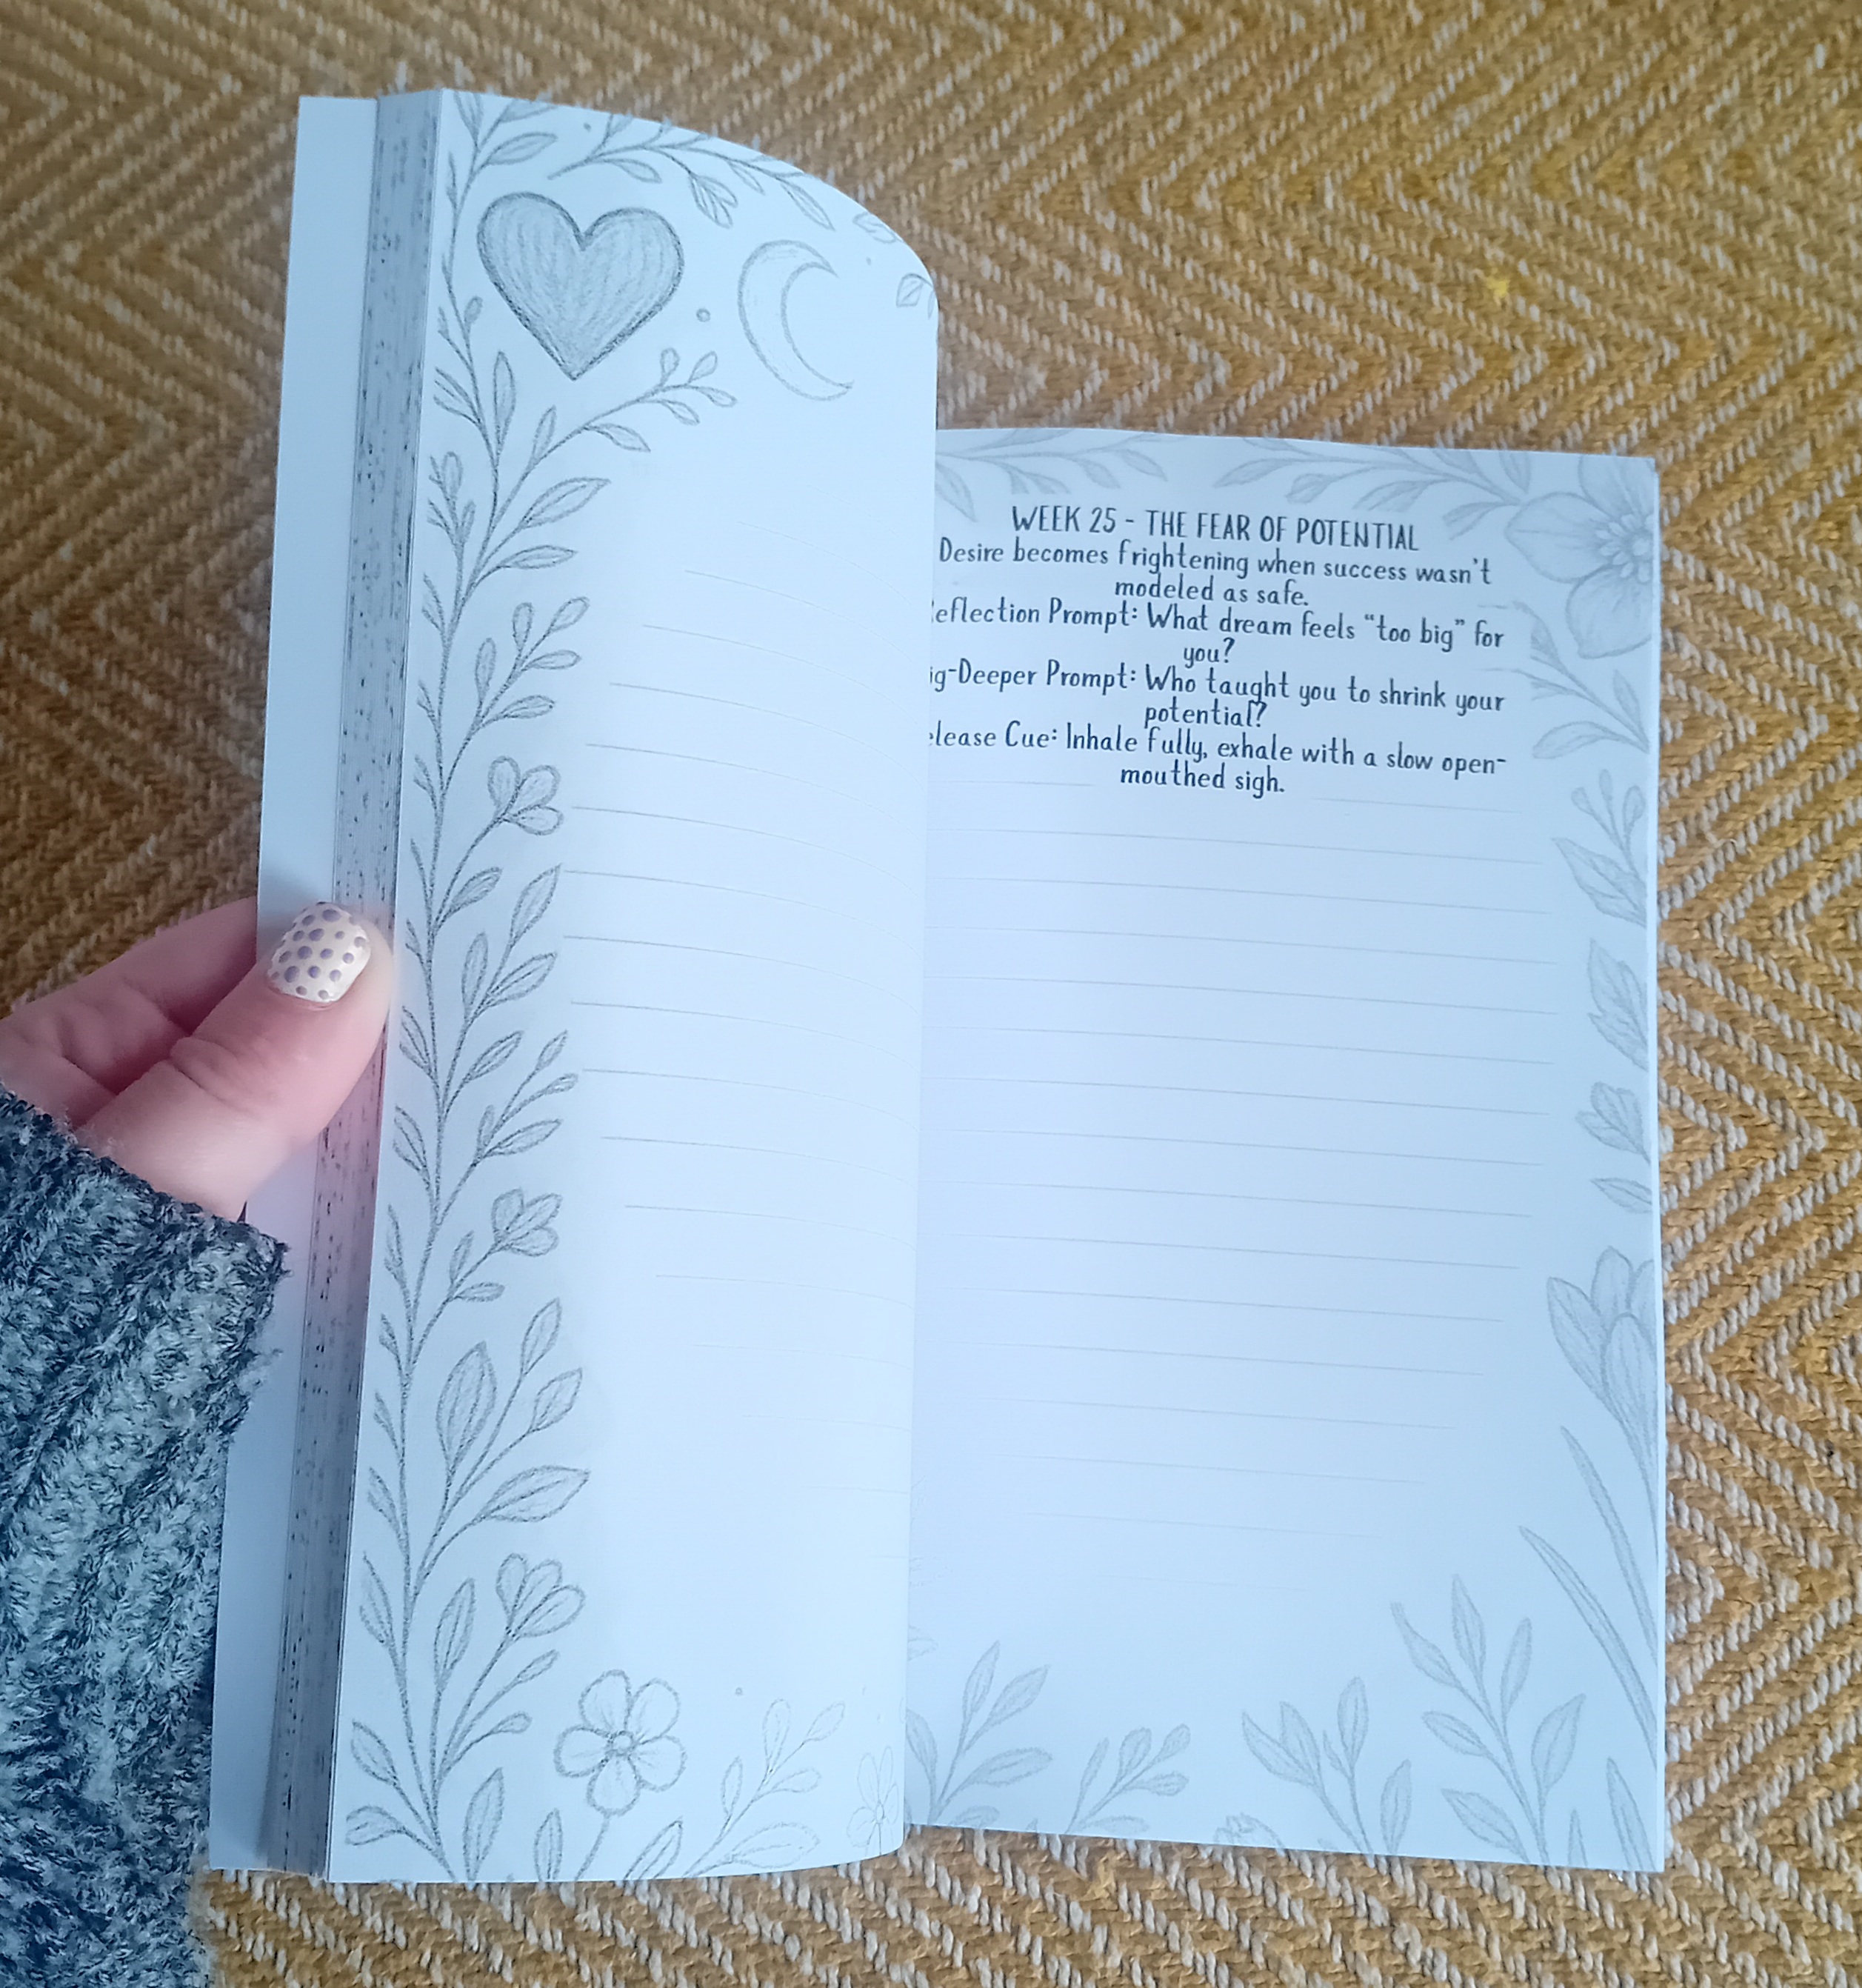 WEEK 25 - THE FEAR OF POTENTIAL
Desire becomes frightening when success wasn't
modeled as safe.
eflection Prompt: What dream feels "too big" for
you?
ig-Deeper Prompt: Who taught you to shrink your
potential?
elease Cue: Inhale fully, exhale with a slow open-
mouthed sigh.